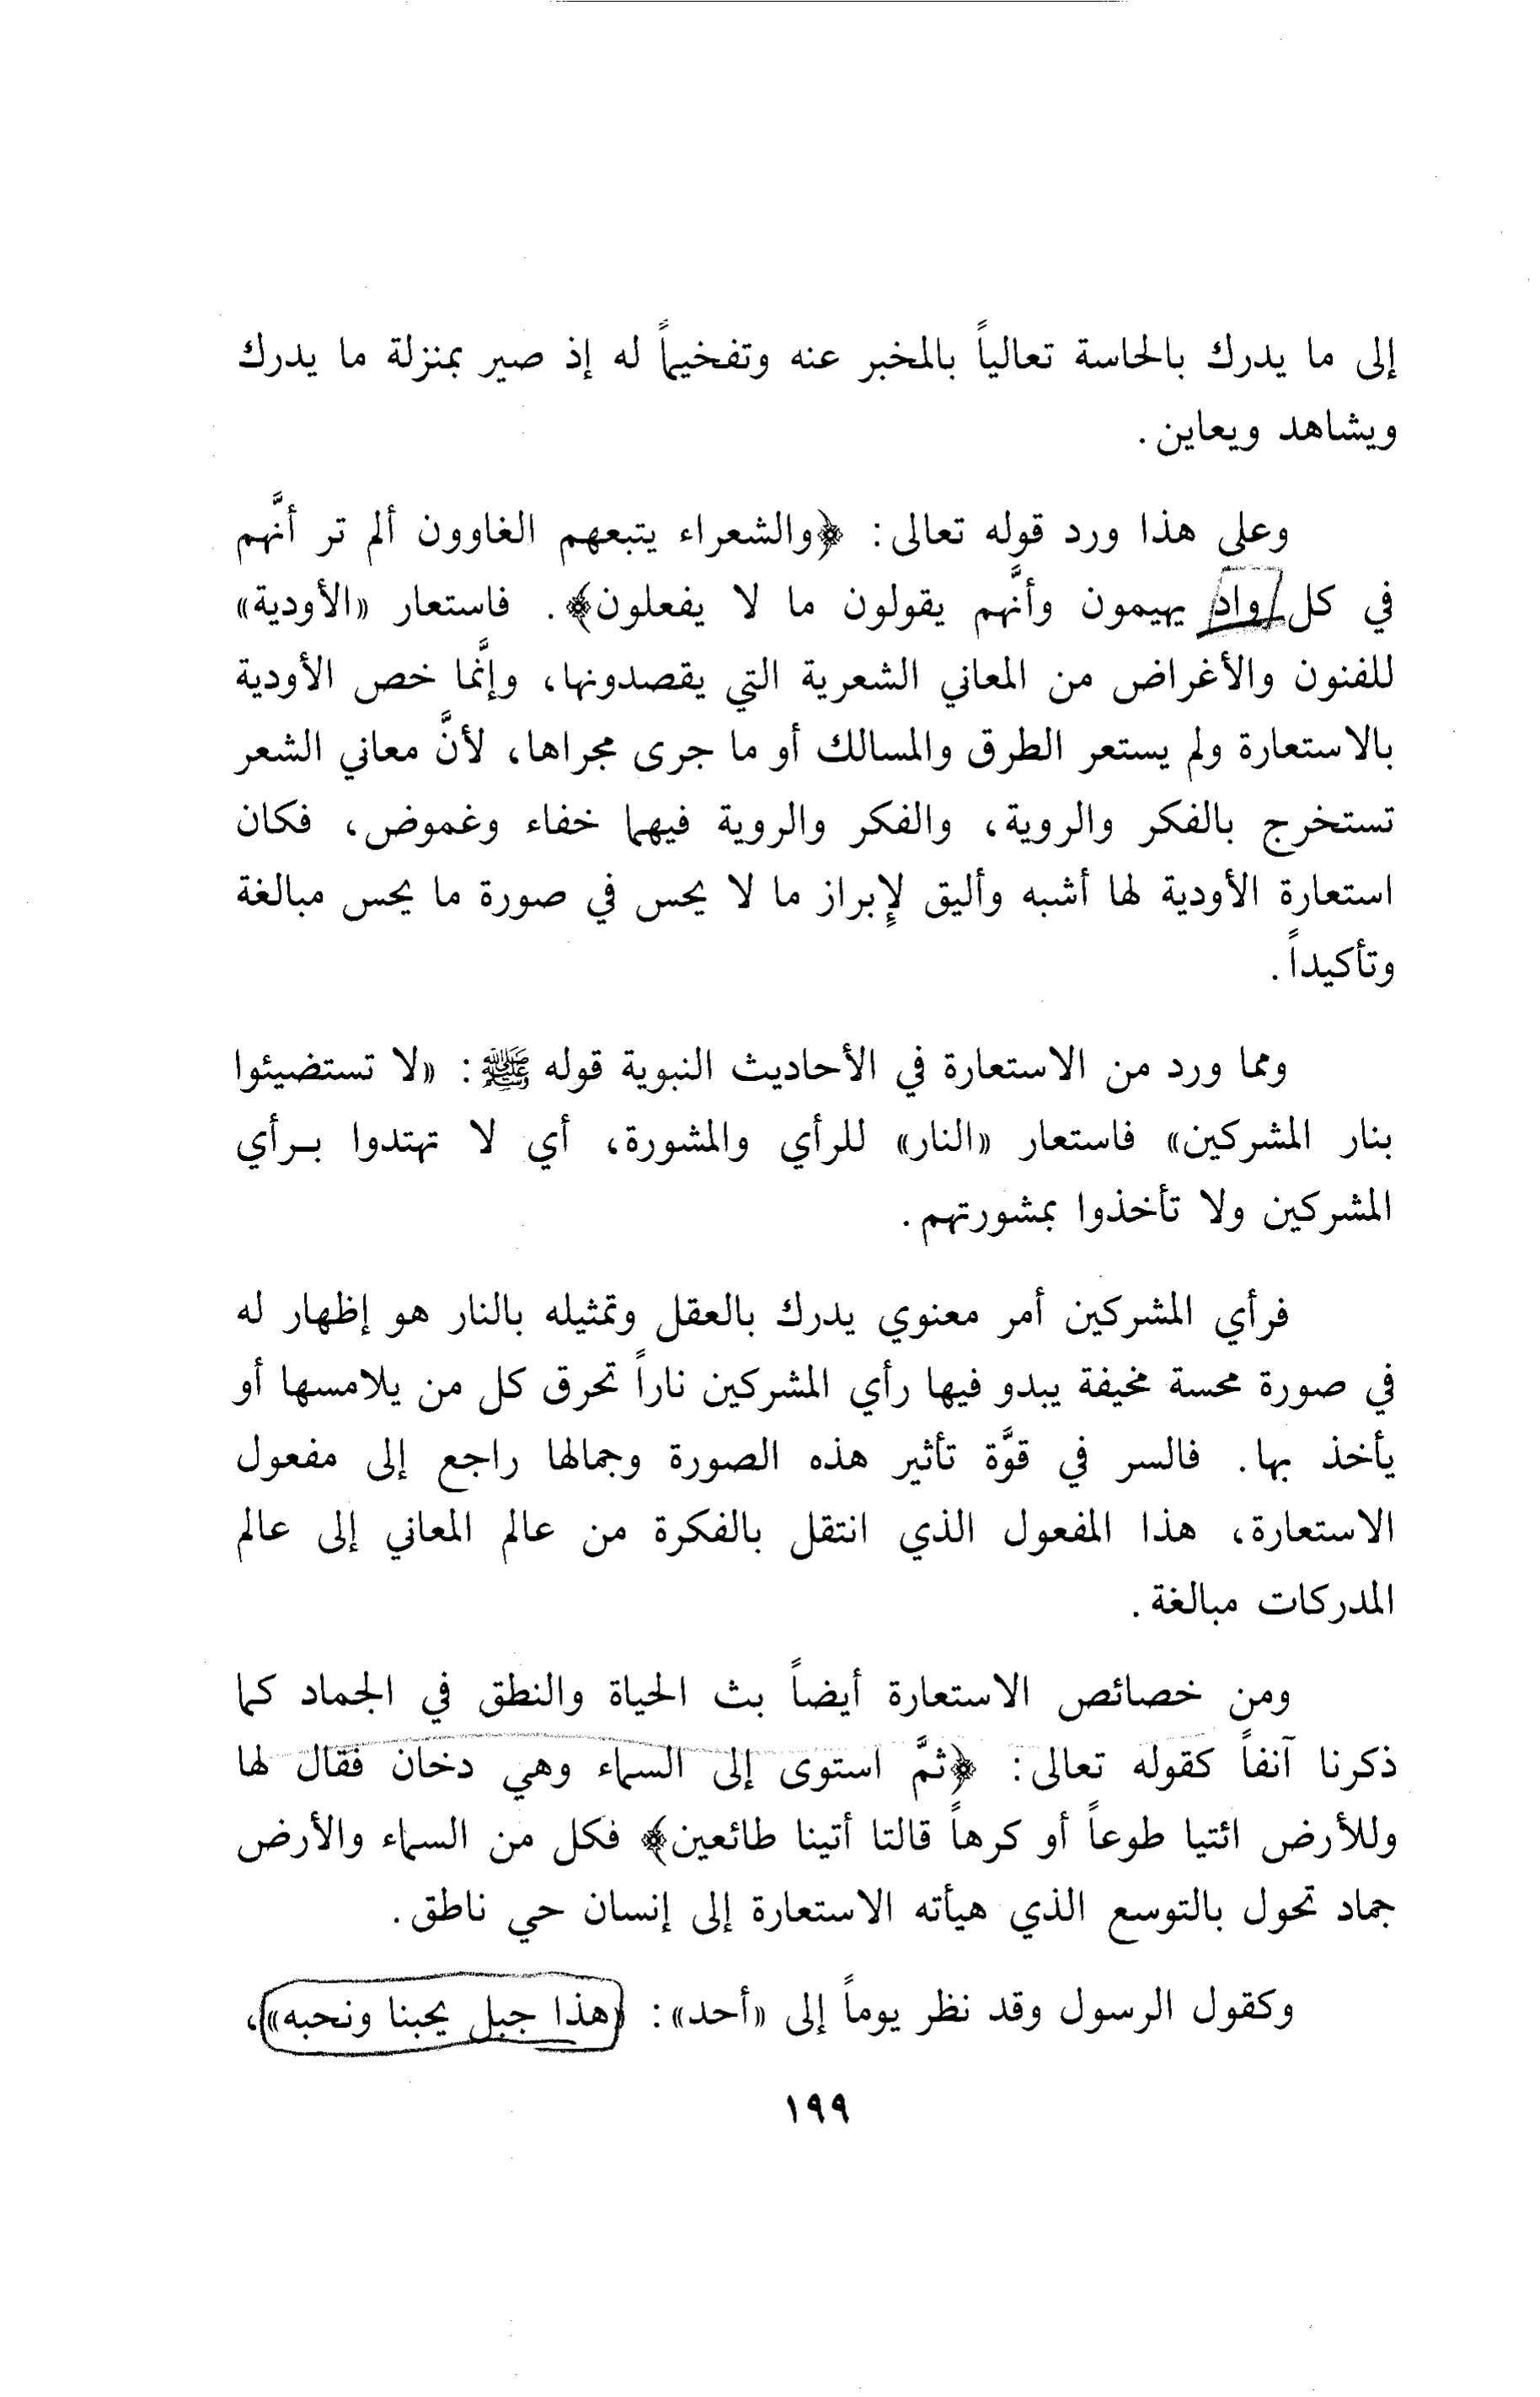 إلى ما يدرك بالحاسة تعالياً بالمخبر عنه وتفخيماً له إذ صير بمنزلة ما يدرك
ويشاهد ويعاين.
وعلى هذا ورد قوله تعالى: ﴿والشعراء يتبعهم الغاوون ألم تر أنَّهم
في كل واد يهيمون وأنَّهم يقولون ما لا يفعلون﴾. فاستعار «الأودية»
للفنون والأغراض من المعاني الشعرية التي يقصدونها، وإنَّما خص الأودية
بالاستعارة ولم يستعر الطرق والمسالك أو ما جرى مجراها، لأنَّ معاني الشعر
تستخرج بالفكر والروية، والفكر والروية فيهما خفاء وغموض، فكان
استعارة الأودية لها أشبه وأليق لإبراز ما لا يحس في صورة ما يحس مبالغة
وتأكيداً.
ومما ورد من الاستعارة في الأحاديث النبوية قوله ﷺ: «لا تستضيئوا
بنار المشركين» فاستعار «النار» للرأي والمشورة، أي لا تهتدوا بـرأي
المشركين ولا تأخذوا بمشورتهم.
فرأي المشركين أمر معنوي يدرك بالعقل وتمثيله بالنار هو إظهار له
في صورة محسة مخيفة يبدو فيها رأي المشركين ناراً تحرق كل من يلامسها أو
يأخذ بها. فالسر في قوَّة تأثير هذه الصورة وجمالها راجع إلى مفعول
الاستعارة، هذا المفعول الذي انتقل بالفكرة من عالم المعاني إلى عالم
المدركات مبالغة.
ومن خصائص الاستعارة أيضاً بث الحياة والنطق في الجماد كما
ذكرنا آنفاً كقوله تعالى: ﴿ثمَّ استوى إلى السماء وهي دخان فقال لها
وللأرض ائتيا طوعاً أو كرهاً قالتا أتينا طائعين﴾ فكل من السماء والأرض
جماد تحول بالتوسع الذي هيأته الاستعارة إلى إنسان حي ناطق.
وكقول الرسول وقد نظر يوماً إلى «أحد»: «هذا جبل يحبنا ونحبه»،
١٩٩